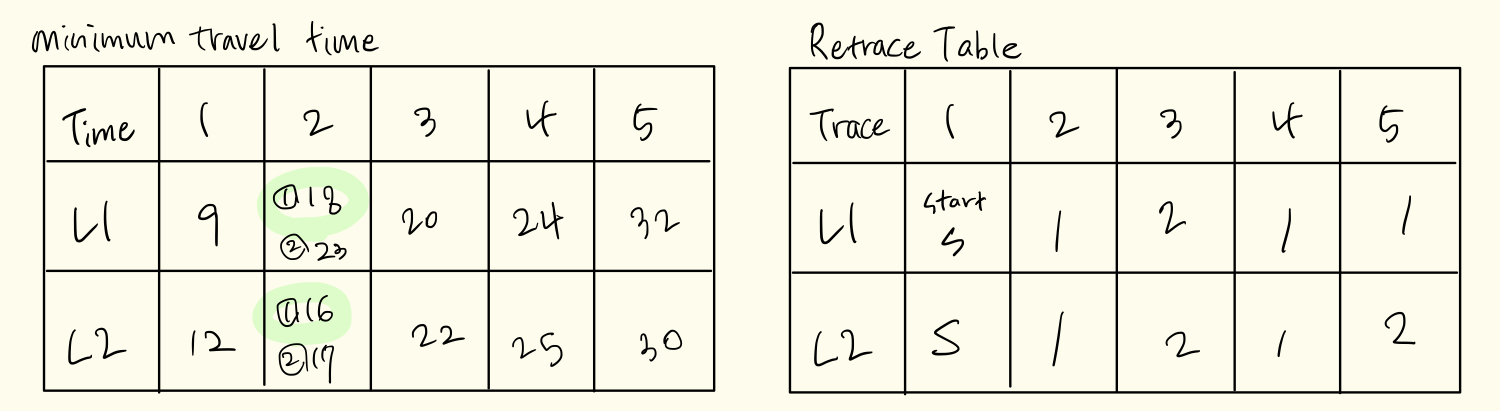 minimum travel time
Time 1 2 3 4 5
L1 9 ①18 20 24 32
②23
L2 12 ①16 22 25 30
②17
Retrace Table
Trace 1 2 3 4 5
L1 start S 1 2 1 1
L2 S 1 2 1 2